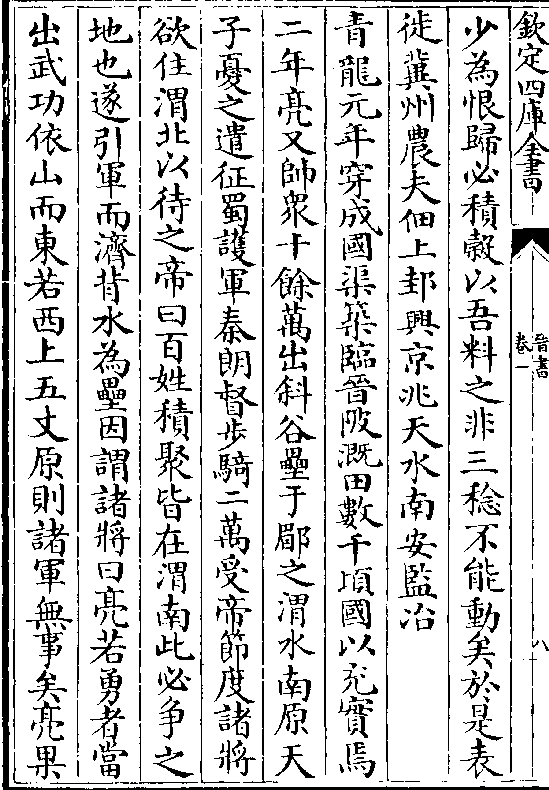 欽定四庫全書
晉書
卷一
八
少為恨歸必積穀以吾料之非三稔不能動矣於是表
徙冀州農夫佃上邽興京兆天水南安監冶
青龍元年穿成國渠築臨晉陂溉田數千頃國以充實焉
二年亮又帥衆十餘萬出斜谷壘于郿之渭水南原天
子憂之遣征蜀護軍秦朗督步騎二萬受帝節度諸將
欲住渭北以待之帝曰百姓積聚皆在渭南此必争之
地也遂引軍而濟背水為壘因謂諸將曰亮若勇者當
出武功依山而東若西上五丈原則諸軍無事矣亮果